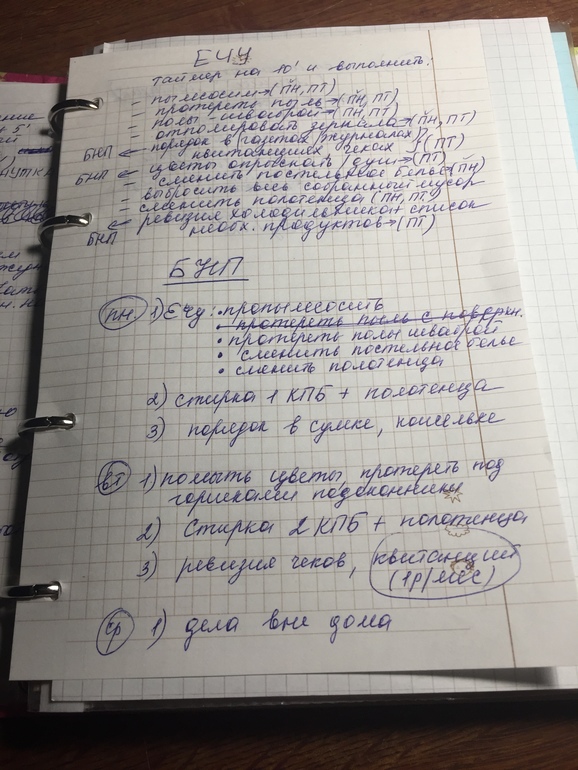 ЕЧЧ
таймер на 10' и выполнить:
- пылесосим→(ПН, ПТ)
- протереть пыль→(ПН, ПТ)
- полы - шваброй→(ПН, ПТ)
- отполировать зеркала→(ПН, ПТ)
БНП ← порядок в (газетах, журналах),
квитанциях чеках }(ПТ)
БНП ← цветы опрыскать /душ→(ПТ)
- сменить постельное белье→(ПН)
- выбросить весь собранный мусор
- сменить полотенца (ПН, ПТ)
БНП ← ревизия холодильника + список
необх. продуктов→(ПТ)
БНП
ПН. 1) ЕЧу: • пропылесосить
• протереть пыль с поверхн.
• протереть полы шваброй
• сменить постельное белье
• сменить полотенца
2) стирка 1 КПБ + полотенца
3) порядок в сумке, кошельке
ВТ 1) помыть цветы, протереть под
горшками подоконники
2) Стирка 2 КПБ + полотенца
3) ревизия чеков, квитанций
(1р/мес)
ср 1) дела вне дома